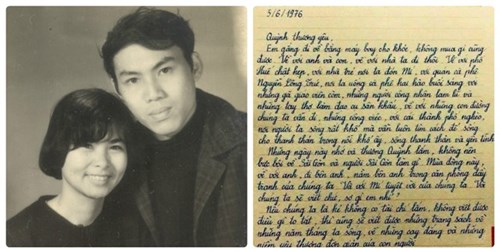 3/6/1976
Quỳnh thương yêu,
Em gắng đi về bằng máy bay cho khỏe, không mua gì cũng
được. Về với anh và con, về với nhà ta đi thôi. Về với phố
Huế chật hẹp, với nhà trẻ nơi ta đón Mí, với quán cà phê
Nguyễn Công Trứ, nơi ta uống cà phê hai hào buổi sáng với
những gã giáo viên còm, những người công nhân lam lũ và
những tay thợ làm đao sân khấu, về với những con đường
chúng ta vẫn đi, những công việc, với cái thành phố nghèo,
nơi người ta sống rất khổ mà vẫn luôn tìm cách để sống
cho thanh thản trong nỗi khổ ấy, sống thanh thản và yên tĩnh
Những ngày này nhớ và thương Quỳnh lắm, không nên
bực bội về Sài Gòn và người Sài Gòn làm gì. Mùa đông này,
về với anh, đi bên anh, nằm bên anh trong căn phòng đầy
tranh của chúng ta. Về với Mí tuyệt vời của chúng ta. Và
chúng ta sẽ viết chứ, sợ gì em nhỉ?
Nếu chúng ta kể không có tài chi lắm, không viết được
điều gì to tát, thì cũng sẽ viết được những trang sách về
những năm tháng ta sống, về những say đắng và những
niềm yêu thương đơn giản của con người